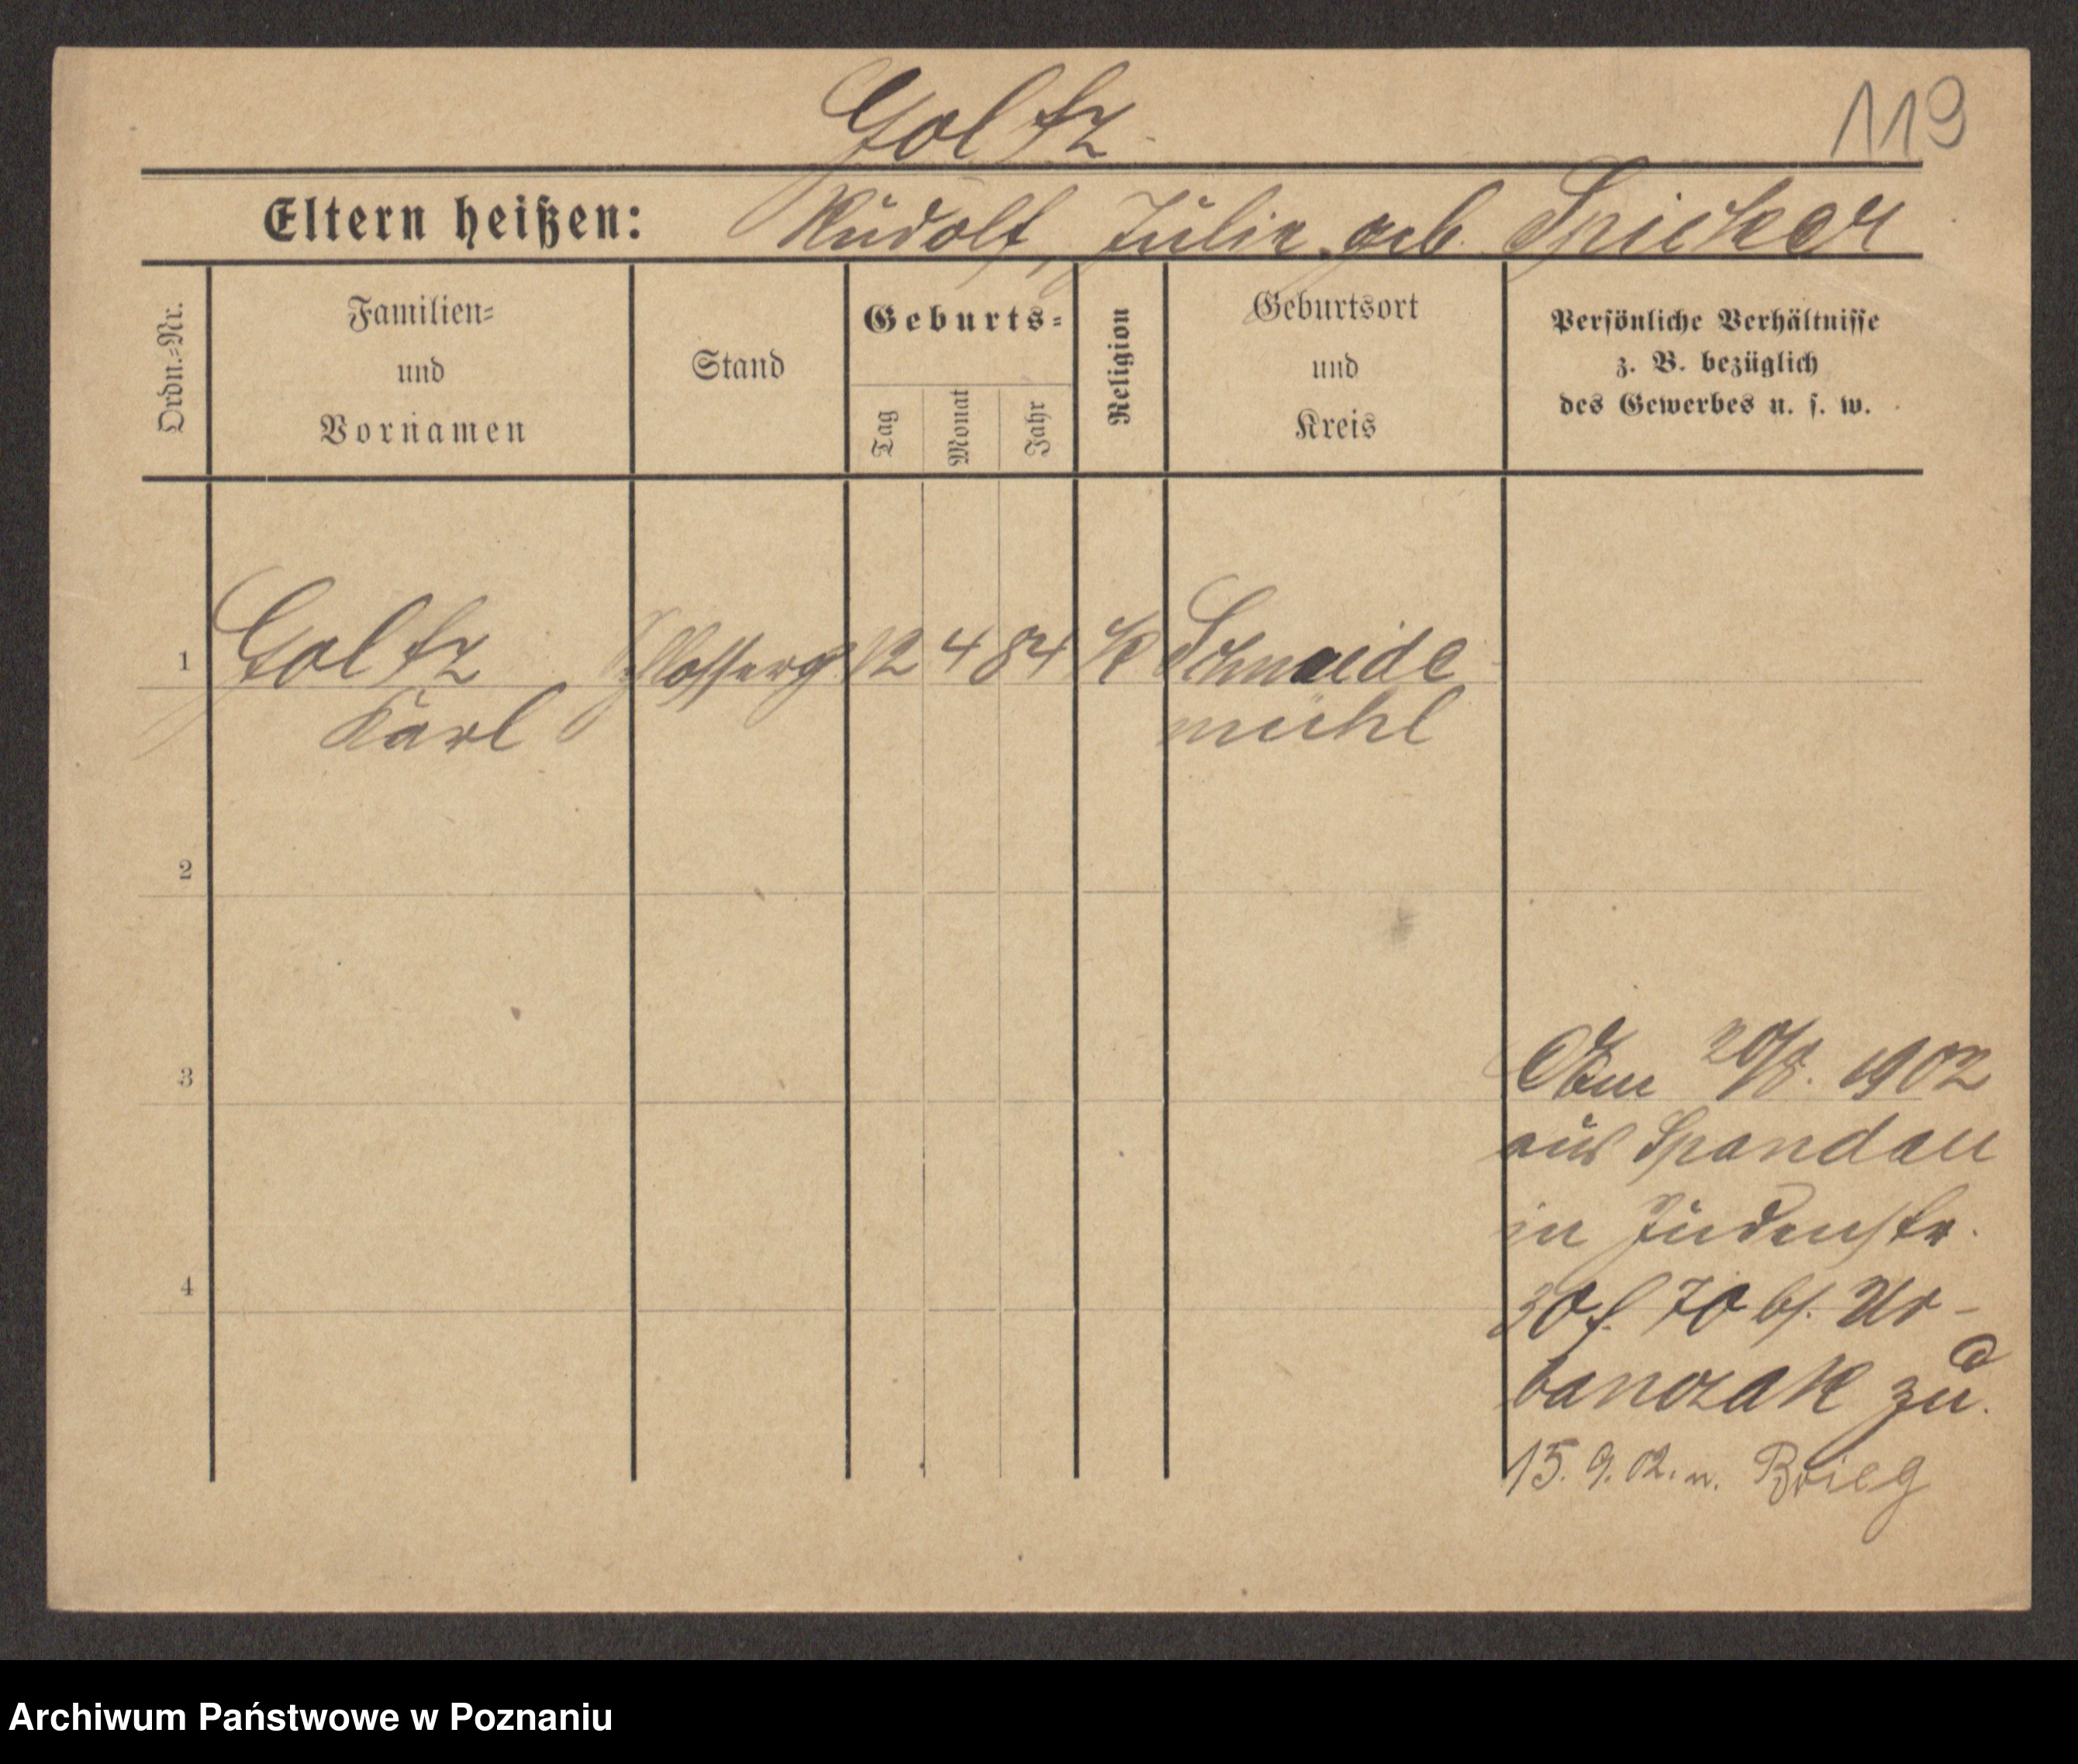 Goltz
119
Eltern heißen: Rudolf, Julie geb. Spicker
Ordn.=Nr.
Familien=
und
Vornamen
Stand
Geburts=
Tag
Monat
Jahr
Religion
Geburtsort
und
Kreis
Persönliche Verhältnisse
z. B. bezüglich
des Gewerbes u. s. w.
1 Goltz Schlosserg. 12 4 84 Schneide
Karl mühl
2
3
4
Am 20/8. 1902
aus Spandau
in Judenstr.
30 f. 70 bs. Ur-
banczak zu.
15. 9. 02. n. Brieg
Archiwum Państwowe w Poznaniu